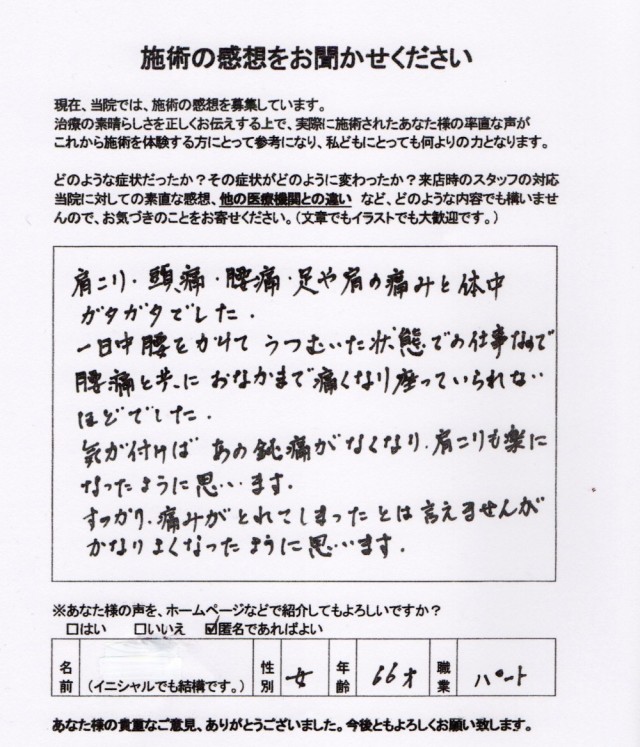 施術の感想をお聞かせください
現在、当院では、施術の感想を募集しています。
治療の素晴らしさを正しくお伝えする上で、実際に施術されたあなた様の率直な声が
これから施術を体験する方にとって参考になり、私どもにとっても何よりの力となります。
どのような症状だったか?その症状がどのように変わったか?来店時のスタッフの対応
当院に対しての素直な感想、他の医療機関との違い など、どのような内容でも構いませ
んので、お気づきのことをお寄せください。(文章でもイラストでも大歓迎です。)
肩こり・頭痛・腰痛・足や肩の痛みと体中
ガタガタでした.
一日中腰をかけて うつむいた状態での仕事なので
腰痛と共に おなかまで痛くなり座っていられない
ほどでした.
気が付けば あの鈍痛がなくなり.肩こりも楽に
なったように思います.
すっかり.痛みがとれてしまったとは言えませんが
かなりよくなったように思います.
※あなた様の声を、ホームページなどで紹介してもよろしいですか?
□はい □いいえ ☑匿名であればよい
名前 (イニシャルでも結構です。) 性別 女 年齢 66才 職業 パート
あなた様の貴重なご意見、ありがとうございました。今後ともよろしくお願い致します。